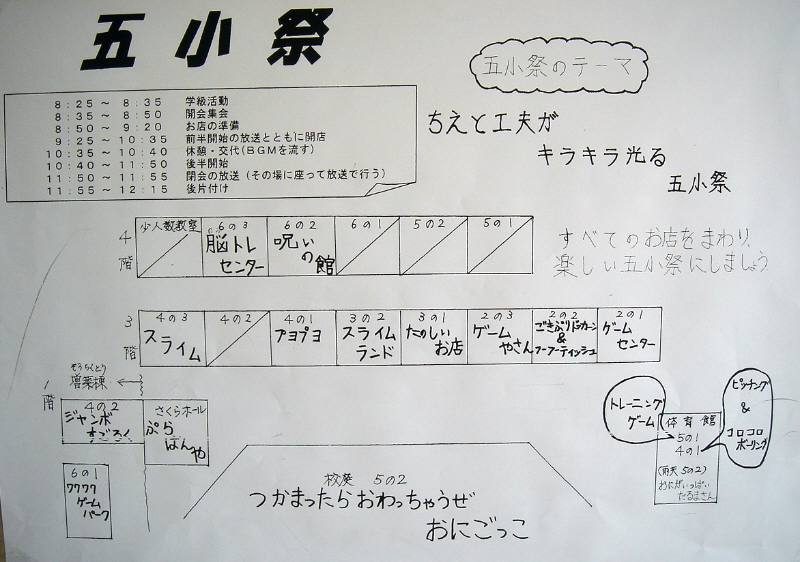 五小祭
8:25 ～ 8:35 学級活動
8:35 ～ 8:50 開会集会
8:50 ～ 9:20 お店の準備
9:25 ～ 10:35 前半開始の放送とともに開店
10:35 ～ 10:40 休憩・交代(BGMを流す)
10:40 ～ 11:50 後半開始
11:50 ～ 11:55 閉会の放送(その場に座って放送で行う)
11:55 ～ 12:15 後片付け
五小祭のテーマ
ちえと工夫が
キラキラ光る
五小祭
すべてのお店をまわり、
楽しい五小祭にしましょう
4階
少人数教室
6の3
脳トレ
センター
6の2
呪いの館
6の1
5の2
5の1
3階
4の3
スライム
4の2
4の1
プヨプヨ
3の2
スライム
ランド
3の1
たのしい
お店
2の3
ゲーム
やさん
2の2
ごきぶりドッカーン
&
フーフーティッシュ
2の1
ゲーム
センター
1階
ぞうちくとう
増築棟
4の2
ジャンボ
すごろく
さくらホール
ぷら
ばん
や
6の1
ワクワク
ゲーム
パーク
校庭 5の2
つかまったらおわっちゃうぜ
おにごっこ
トレーニング
ゲーム
ピッチング
&
コロコロ
ボーリング
体育館
5の1
4の1
(雨天 5の2)
おにがいっぱい
だるまさん